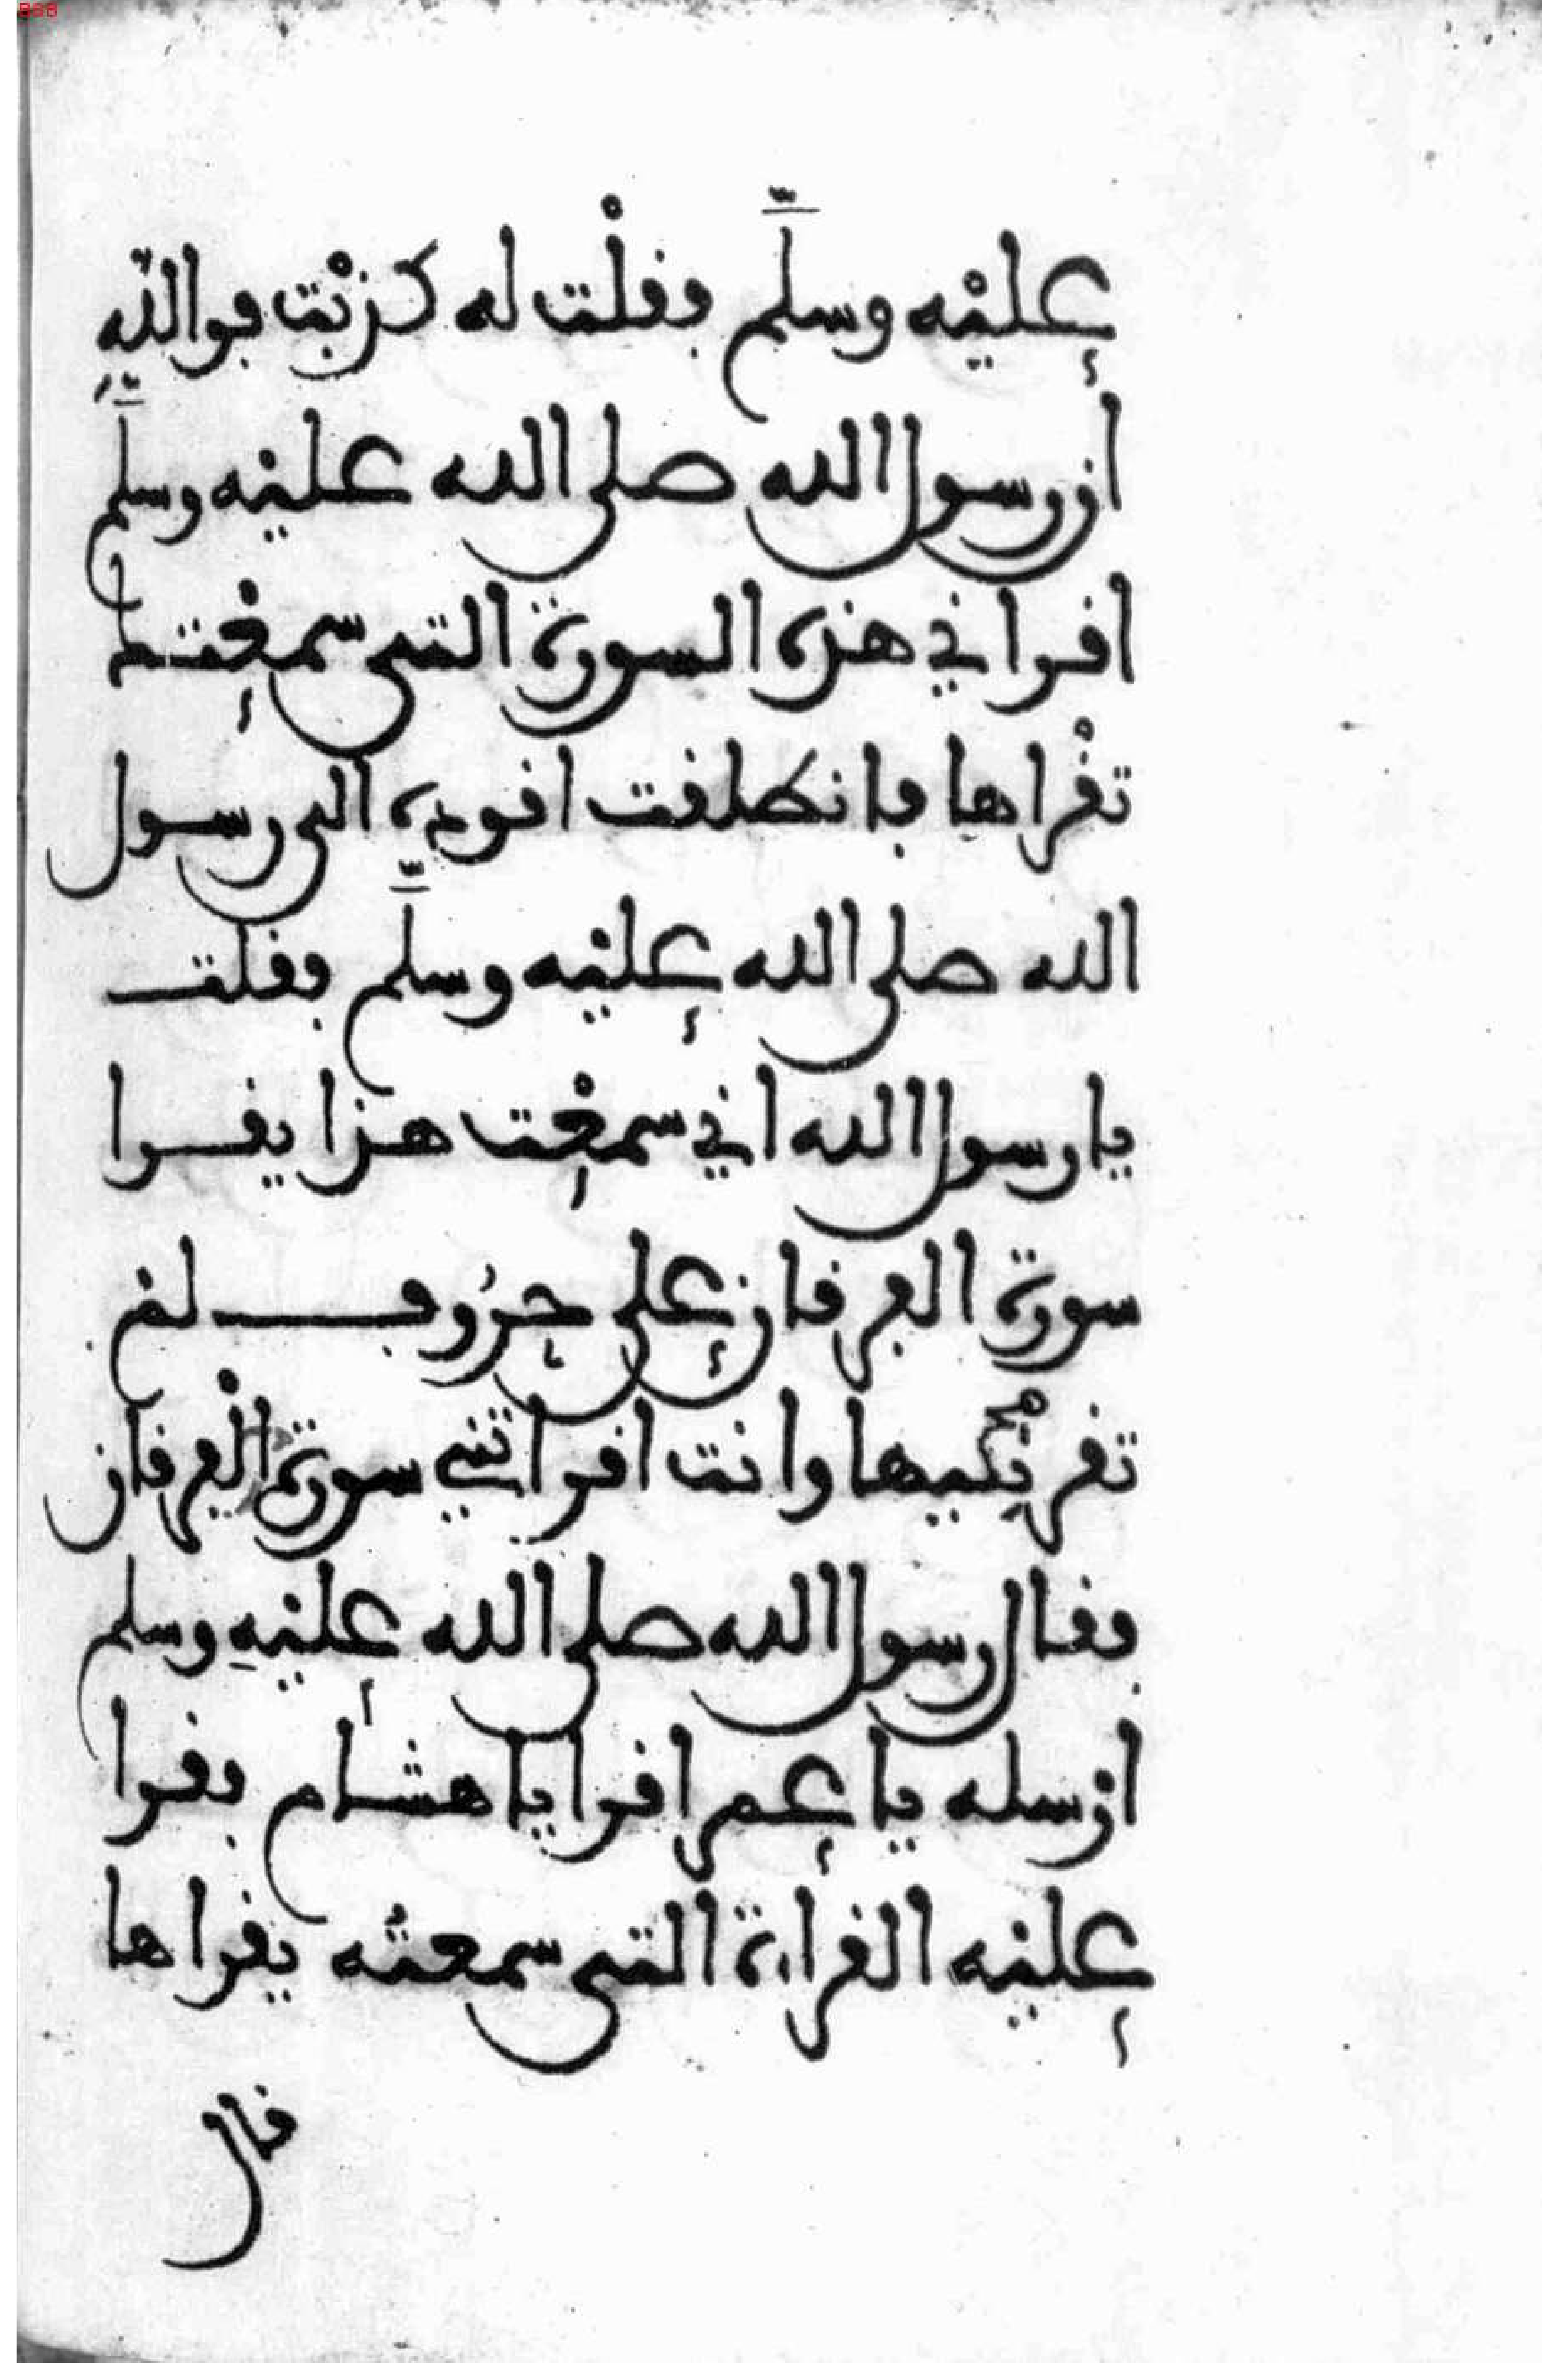 عليْه وسلَّم فقلْت له كذبْت فواللّهِ
أن رسول الله صلى الله عليْه وسلَّم
اقرانى هذه السورة التى سمعْتها
تقْراها فانطلقت اقوده الى رسول
الله صلى الله عليْه وسلَّم فقلت
يا رسول الله انى سمعْت هذا يقرا
سورة الفرقان على حرُوف لم
تقرئْنيها وانت اقراتنى سورة الْفرقان
فقال رسول الله صلى الله عليْهِ وسلم
أرْسله يا عمر اقرا يا هشام فقرا
عليْه القراءة التى سمعتُه يقراها
قال